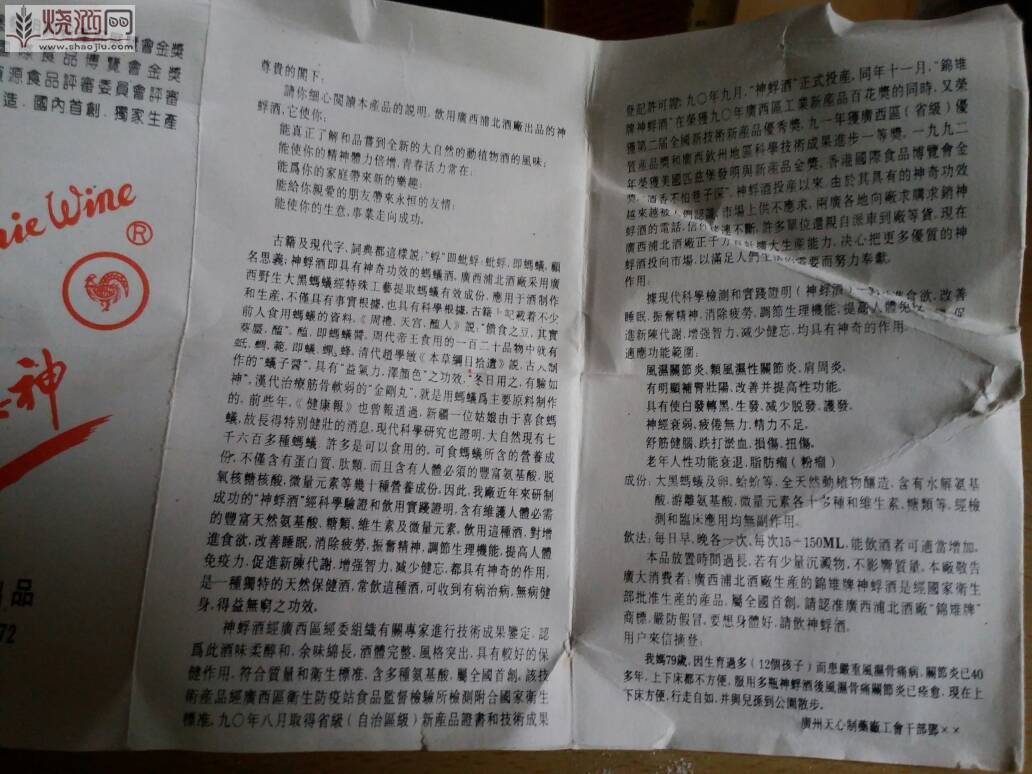 烧酒网
www.shaojiu.com
會金獎
國際食品博覽會金獎
資源食品評審委員會評審
造、國內首創、獨家生產
nie Wine
®
神
品
72
尊貴的閣下:
請你細心閱讀本産品的説明,飲用廣西浦北酒廠出品的神
蜉酒,它使你:
能真正了解和品嘗到全新的大自然的動植物酒的風味;
能使你的精神體力倍增,青春活力常在;
能爲你的家庭帶來新的樂趣;
能給你親愛的朋友帶來永恒的友情;
能使你的生意,事業走向成功。
古籍及現代字,詞典都這樣説:"蜉"即蚍蜉;蚍蜉,即螞蟻,顧
名思義:神蜉酒即具有神奇功效的螞蟻酒,廣西浦北酒廠采用廣
西野生大黑螞蟻經特殊工藝提取螞蟻有效成份,應用于酒制作
和生産,不僅具有事實根據,也具有科學根據,古籍上記載着不少
前人食用螞蟻的資料。《周禮、天宫,醢人》説:"饋食之豆,其實
葵菹,醢",醢,即螞蟻醬。周代帝王食用的一百二十品物中就有
蚳,蜩,範,即蟻,蟬,蜂。清代趙學敏《本草綱目拾遺》説,古人制
作的"蟻子醬",具有"益氣力,澤顔色"之功效,"冬日用之,有驗如
神"。漢代治療筋骨軟弱的"金剛丸",就是用螞蟻爲主要原料制作
的。前些年,《健康報》也曾報道過,新疆一位姑娘由于喜食螞
蟻,故長得特别健壯的消息,現代科學研究也證明,大自然現有七
千六百多種螞蟻,許多是可以食用的。可食螞蟻所含的營養成
份,不僅含有蛋白質,肽類,而且含有人體必須的豐富氨基酸,脱
氧核糖核酸,微量元素等幾十種營養成份,因此,我廠近年來研制
成功的"神蜉酒"經科學驗證和飲用實踐證明,含有維護人體必需
的豐富天然氨基酸、糖類、維生素及微量元素。飲用這種酒,對增
進食欲,改善睡眠,消除疲勞,振奮精神,調節生理機能,提高人體
免疫力,促進新陳代謝,增强智力,减少健忘,都具有神奇的作用,
是一種獨特的天然保健酒,常飲這種酒,可收到有病治病,無病健
身,得益無窮之功效。
神蜉酒經廣西區經委組織有關專家進行技術成果鑒定,認
爲此酒味柔醇和、余味綿長,酒體完整,風格突出,具有較好的保
健作用,符合質量和衛生標準,含多種氨基酸,屬全國首創,該技
術産品經廣西區衛生防疫站食品監督檢驗所檢測附合國家衛生
標准。九〇年八月取得省級(自治區級)新産品證書和技術成果
登記許可證;九〇年九月,"神蜉酒"正式投産,同年十一月,"錦雄
牌神蜉酒"在榮獲九〇年廣西區工業新産品百花獎的同時,又榮
獲第二届全國新技術新産品優秀獎,九一年獲廣西區(省級)優
質産品獎和廣西欽州地區科學技術成果進步一等獎,一九九二
年榮獲美國匹兹堡發明與新産品金獎,香港國際食品博覽會金
獎,"酒香不怕巷子深",神蜉酒投産以來,由於其具有的神奇功效
越來越被人們認識,市場上供不應求,兩廣各地向廠求購求銷神
蜉酒的電話,信件接連不斷,許多單位還親自派車到廠等貨,現在
廣西浦北酒廠正千方百計擴大生産能力,决心把更多優質的神
蜉酒投向市場,以滿足人們生活的需要而努力奉獻。
作用:
據現代科學檢測和實踐證明(神蜉酒)對增進食欲,改善
睡眠,振奮精神,消除疲勞,調節生理機能,提高人體免疫力,促
進新陳代謝,增强智力,减少健忘,均具有神奇的作用。
適應功能範圍:
風濕關節炎、類風濕性關節炎、肩周炎。
有明顯補腎壯陽、改善并提高性功能。
具有使白發轉黑,生發、减少脱發、護發。
神經衰弱,疲倦無力,精力不足。
舒筋健腦,跌打淤血,損傷,扭傷。
老年人性功能衰退,脂肪瘤(粉瘤)
成份:大黑螞蟻及卵、蛤蚧等,全天然動植物釀造,含有水解氨基
酸,游離氨基酸,微量元素各十多種和維生素,糖類等,經檢
測和臨床應用均無副作用。
飲法:每日早、晚各一次,每次15-150ML,能飲酒者可適當增加。
本品放置時間過長,若有少量沉澱物,不影響質量。本廠敬告
廣大消費者:廣西浦北酒廠生産的錦雄牌神蜉酒是經國家衛生
部批准生産的産品,屬全國首創,請認准廣西浦北酒廠"錦雄牌"
商標,嚴防假冒。要想身體好,請飲神蜉酒。
用户來信摘登:
我媽79歲,因生育過多(12個孩子)而患嚴重風濕骨痛病,關節炎已40
多年,上下床都不方便,服用多瓶神蜉酒後風濕骨痛關節炎已痊愈,現在上
下床方便,行走自如,并與兒孫到公園散步。
廣州天心制藥廠工會干部鄧××